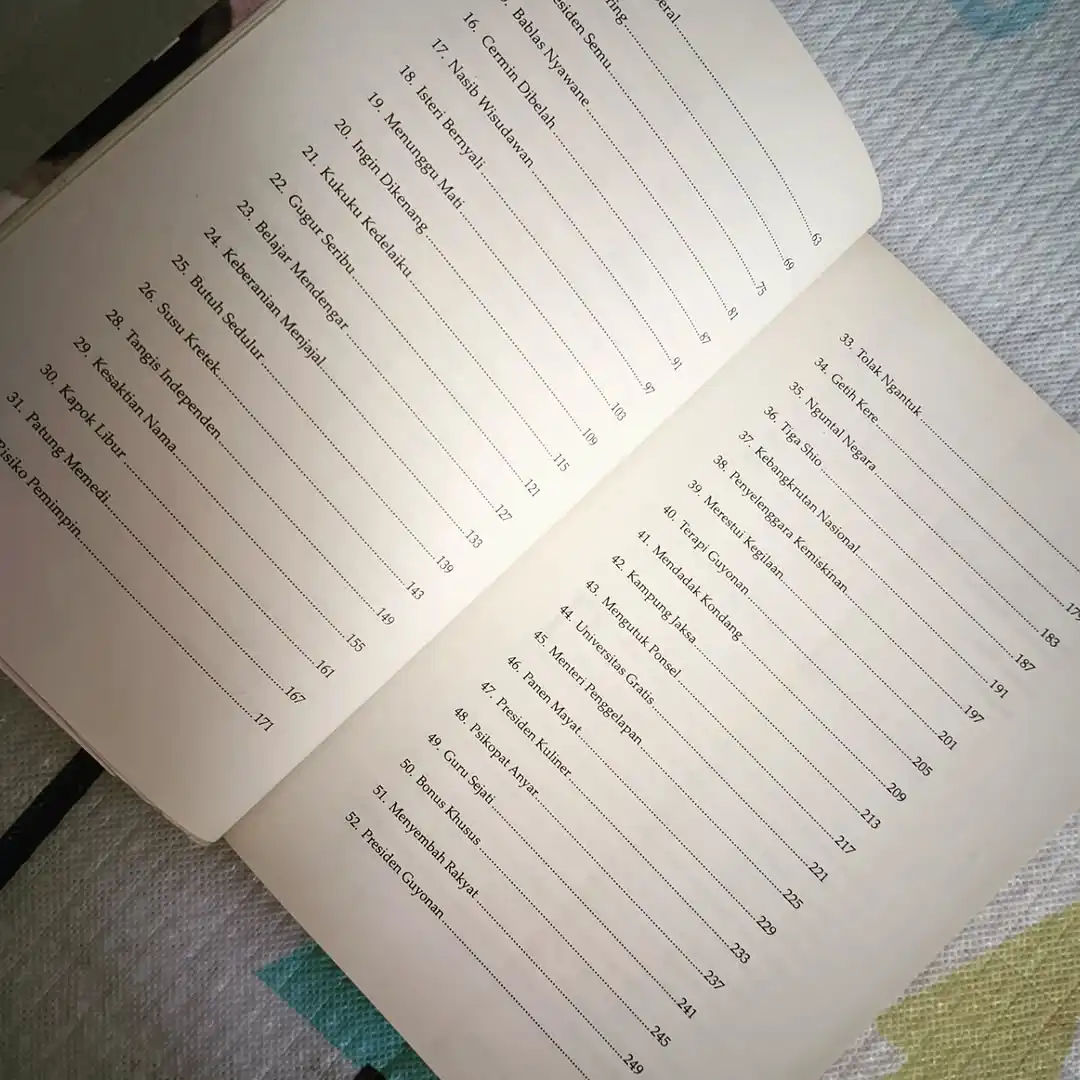 63
69
Semu 75
Bablas Nyawane 81
16. Cermin Dibelah 87
17. Nasib Wisudawan 91
18. Isteri Bernyali 97
19. Menunggu Mati 103
20. Ingin Dikenang 109
21. Kukuku Kedelaiku 115
22. Gugur Seribu 121
23. Belajar Mendengar 127
24. Keberanian Menjajal 133
25. Butuh Sedulur 139
26. Susu Kretek 143
28. Tangis Independen 149
29. Kesaktian Nama 155
30. Kapok Libur 161
31. Patung Memedi 167
Risiko Pemimpin 171
33. Tolak Ngantuk
34. Getih Kere
35. Nguntal Negara 183
36. Tiga Shio 187
37. Kebangkrutan Nasional 191
38. Penyelenggara Kemiskinan 197
39. Merestui Kegilaan 201
40. Terapi Guyonan 205
41. Mendadak Kondang 209
42. Kampung Jaksa 213
43. Mengutuk Ponsel 217
44. Universitas Gratis 221
45. Menteri Penggelapan 225
46. Panen Mayat 229
47. Presiden Kuliner 233
48. Psikopat Anyar 237
49. Guru Sejati 241
50. Bonus Khusus 245
51. Menyembah Rakyat 249
52. Presiden Guyonan